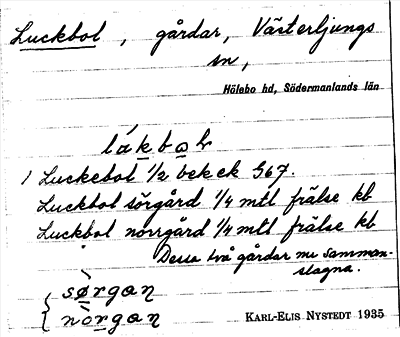 Luckbol, gårdar, Västerljungs
sn,
Hölebo hd, Södermanlands län
låkbọl
1 Luckebol 1/2 bek ek 567.
Luckbol sörgård 1/4 mtl frälse kb
Luckbol norrgård 1/4 mtl frälse kb
Dessa två gårdar nu samman-
slagna.
sørgan
norgan
KARL-ELIS NYSTEDT 1935